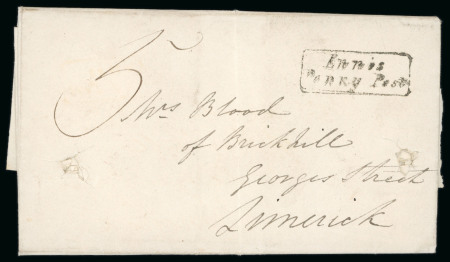 Ennis
Penny Post
5
Mrs Blood
of Brickhill
Georges Street
Limerick